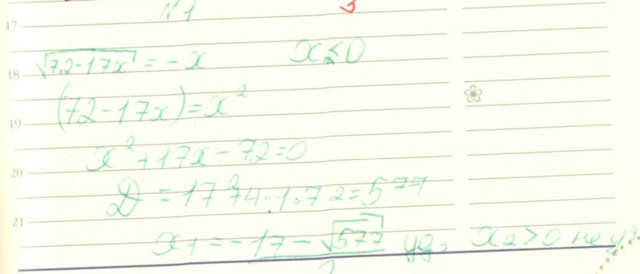 №1 3
17
√72-17x = -x x≤0
18
(72-17x)=x²
19
x²+17x-72=0
20
D=17²+4·1·72=577
21
x1=-17-√577 уд, x2>0 не уд
2